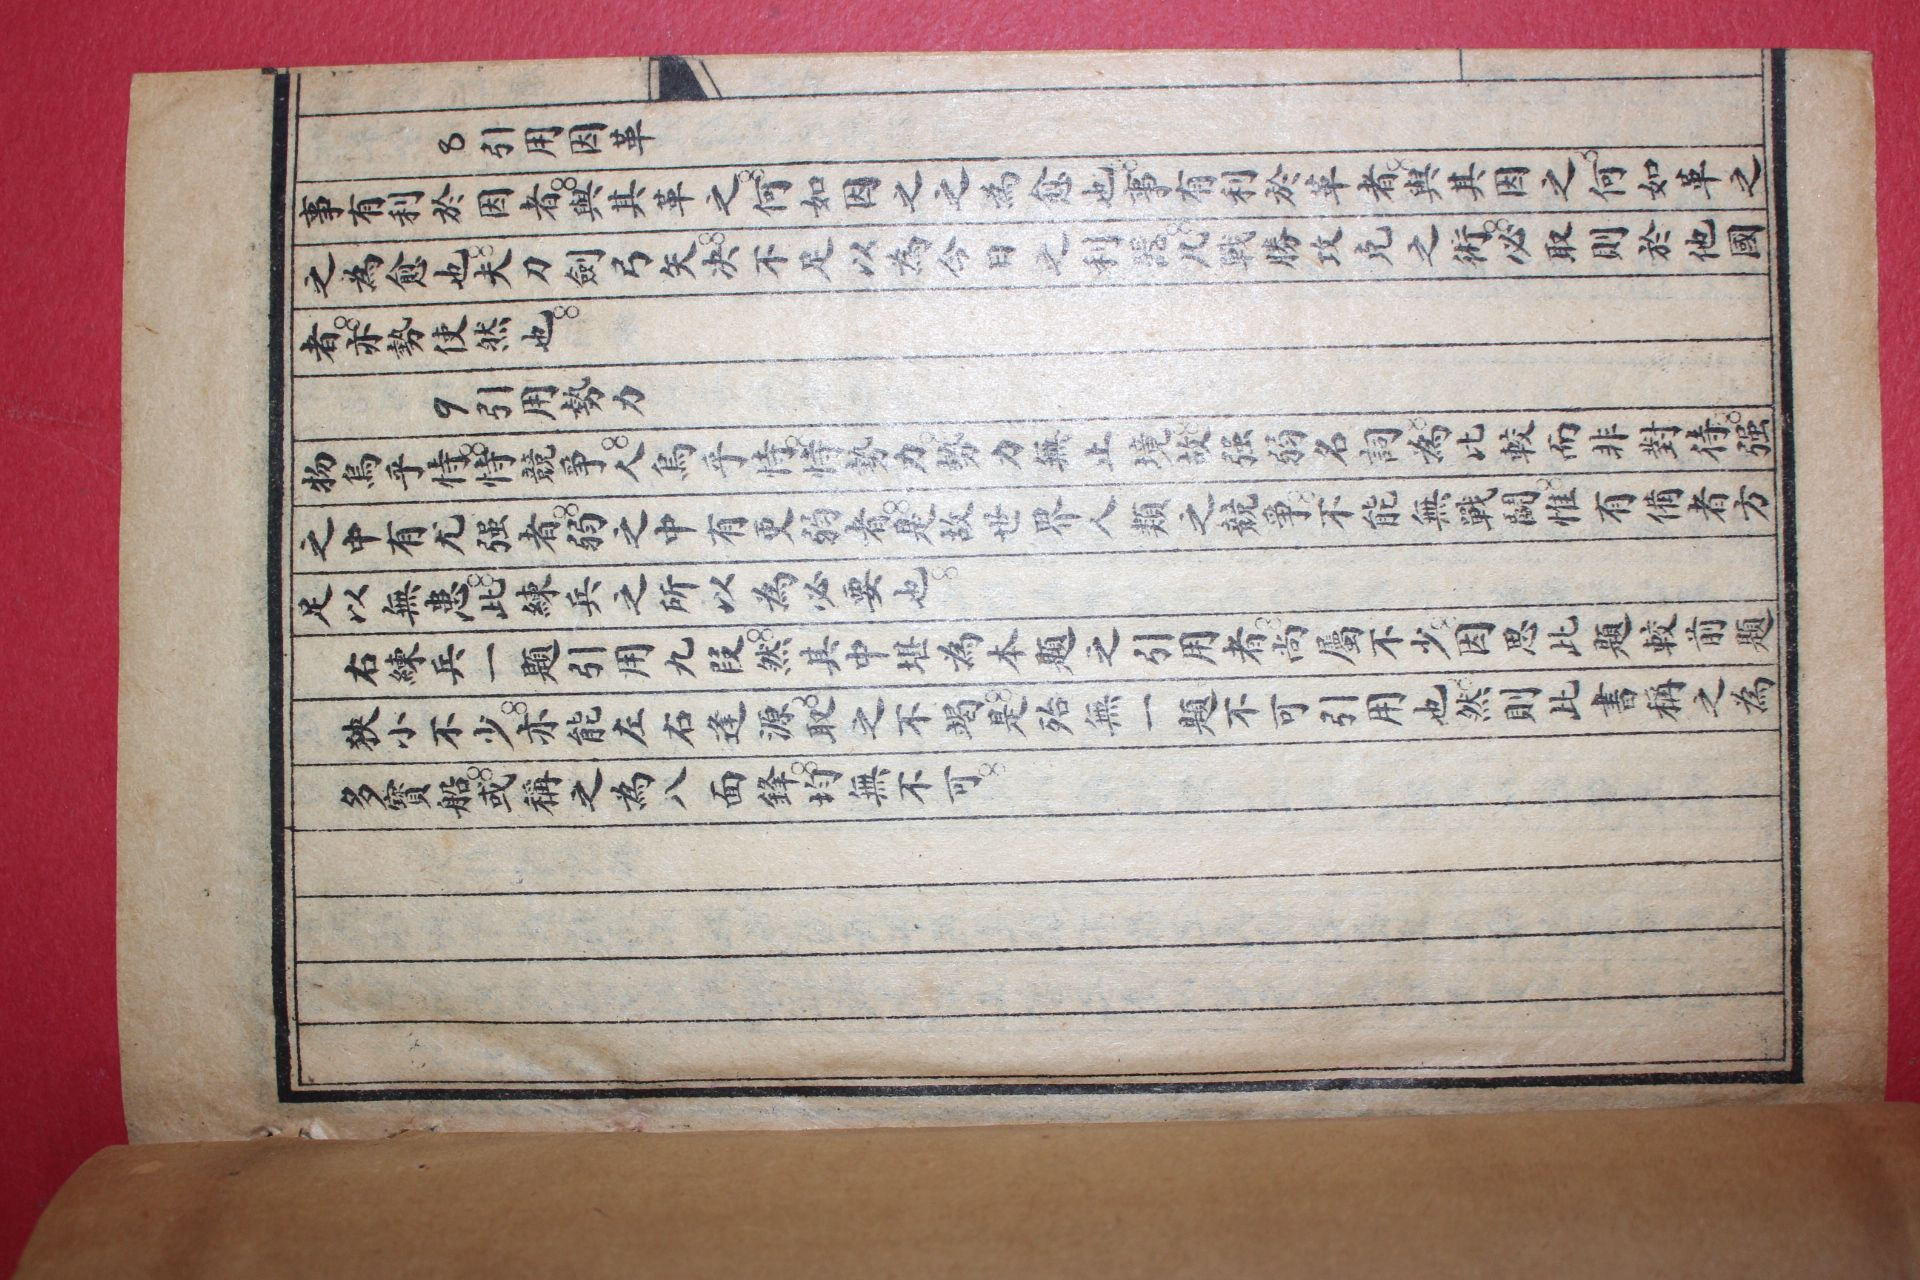 8引用因革
事有利於因者與其革之何如因之之為愈也事有利於革者與其因之何如革之
之為愈也夫刀劍弓矢决不足以為今日之利器凡戰勝攻克之術必取則於他國
者亦勢使然也
9引用勢力
物烏乎恃恃競爭人烏乎恃恃勢力勢力無止境故强弱名詞為比較而非對待强
之中有尤强者弱之中有更弱者是故世界人類之競爭不能無戰鬭惟有備者方
足以無患此練兵之所以為必要也
右練兵一題引用九段然其中堪為本題之引用者尚屬不少因思此題較前題
狹小不少亦能左右逢源取之不竭是殆無一題不可引用也然則此書稱之為
多寶船或稱之為八面鋒均無不可